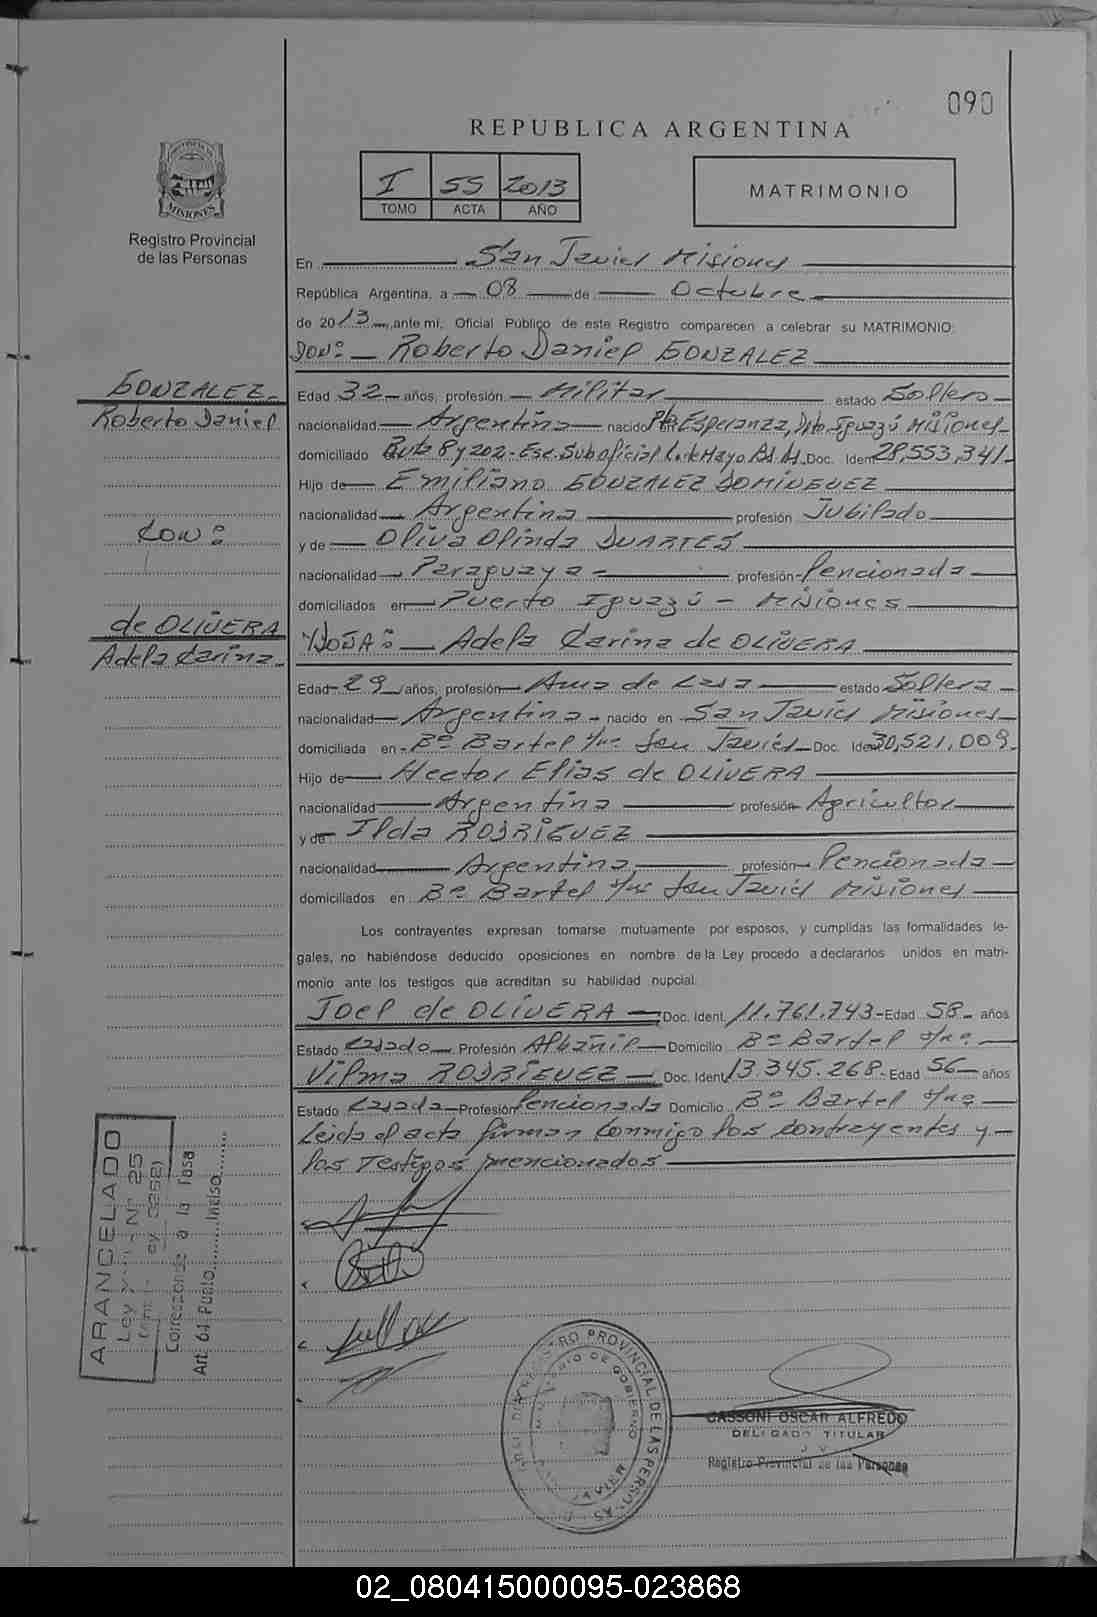 090
REPUBLICA ARGENTINA
I 55 2013
TOMO ACTA AÑO
MATRIMONIO
MISIONES
Registro Provincial
de las Personas
En San Javier Misiones
República Argentina, a 08 de Octubre
de 2013, ante mí, Oficial Público de este Registro comparecen a celebrar su MATRIMONIO:
DON: Roberto Daniel GONZALEZ
GONZALEZ
Roberto Daniel
CON:
de OLIVERA
Adela Carina
Edad 32 años, profesión Militar estado Soltero
nacionalidad Argentina nacido en Pto Esperanza, Dpto Iguazú Misiones
domiciliado Ruta 8 y 202 - Esc. Suboficial C. de Mayo Bs As. Doc. Ident. 28,553,341
Hijo de Emiliano GONZALEZ DOMINGUEZ
nacionalidad Argentina profesión Jubilado
y de Oliva Olinda DUARTES
nacionalidad Paraguaya - profesión Pencionada
domiciliados en Puerto Iguazú - Misiones
Y DOÑA: Adela Carina de OLIVERA
Edad 29 años, profesión Ama de Casa estado Soltera
nacionalidad Argentina - nacido en San Javier Misiones
domiciliada en Bº Bartel s/nº San Javier Doc. Ident 30,521,009
Hijo de Hector Elias de OLIVERA
nacionalidad Argentina profesión Agricultor
y de Ilda RODRIGUEZ
nacionalidad Argentina profesión Pencionada
domiciliados en Bº Bartel s/nº San Javier Misiones
Los contrayentes expresan tomarse mutuamente por esposos, y cumplidas las formalidades le-
gales, no habiéndose deducido oposiciones en nombre de la Ley procedo a declararlos unidos en matri-
monio ante los testigos que acreditan su habilidad nupcial.
Joel de OLIVERA Doc. Ident. 11.761.743 - Edad 58 años
Estado Casado Profesión Albañil Domicilio Bº Bartel s/nº
Vilma RODRIGUEZ Doc. Ident. 13.345.268 - Edad 56 años
Estado Casada Profesión Pencionada Domicilio Bº Bartel s/nº
Leida el acta firman conmigo los contrayentes y
los testigos mencionados
ARANCELADO
Ley Nº 25
Ley 3258)
Corresponde a la Tasa
Art. 61 Punto.......Inciso.......
REGISTRO PROVINCIAL DE LAS PERSONAS
MINISTERIO DE GOBIERNO
JAVIER
CASSONI OSCAR ALFREDO
DELEGADO TITULAR
Registro Provincial de las Personas
02_080415000095-023868